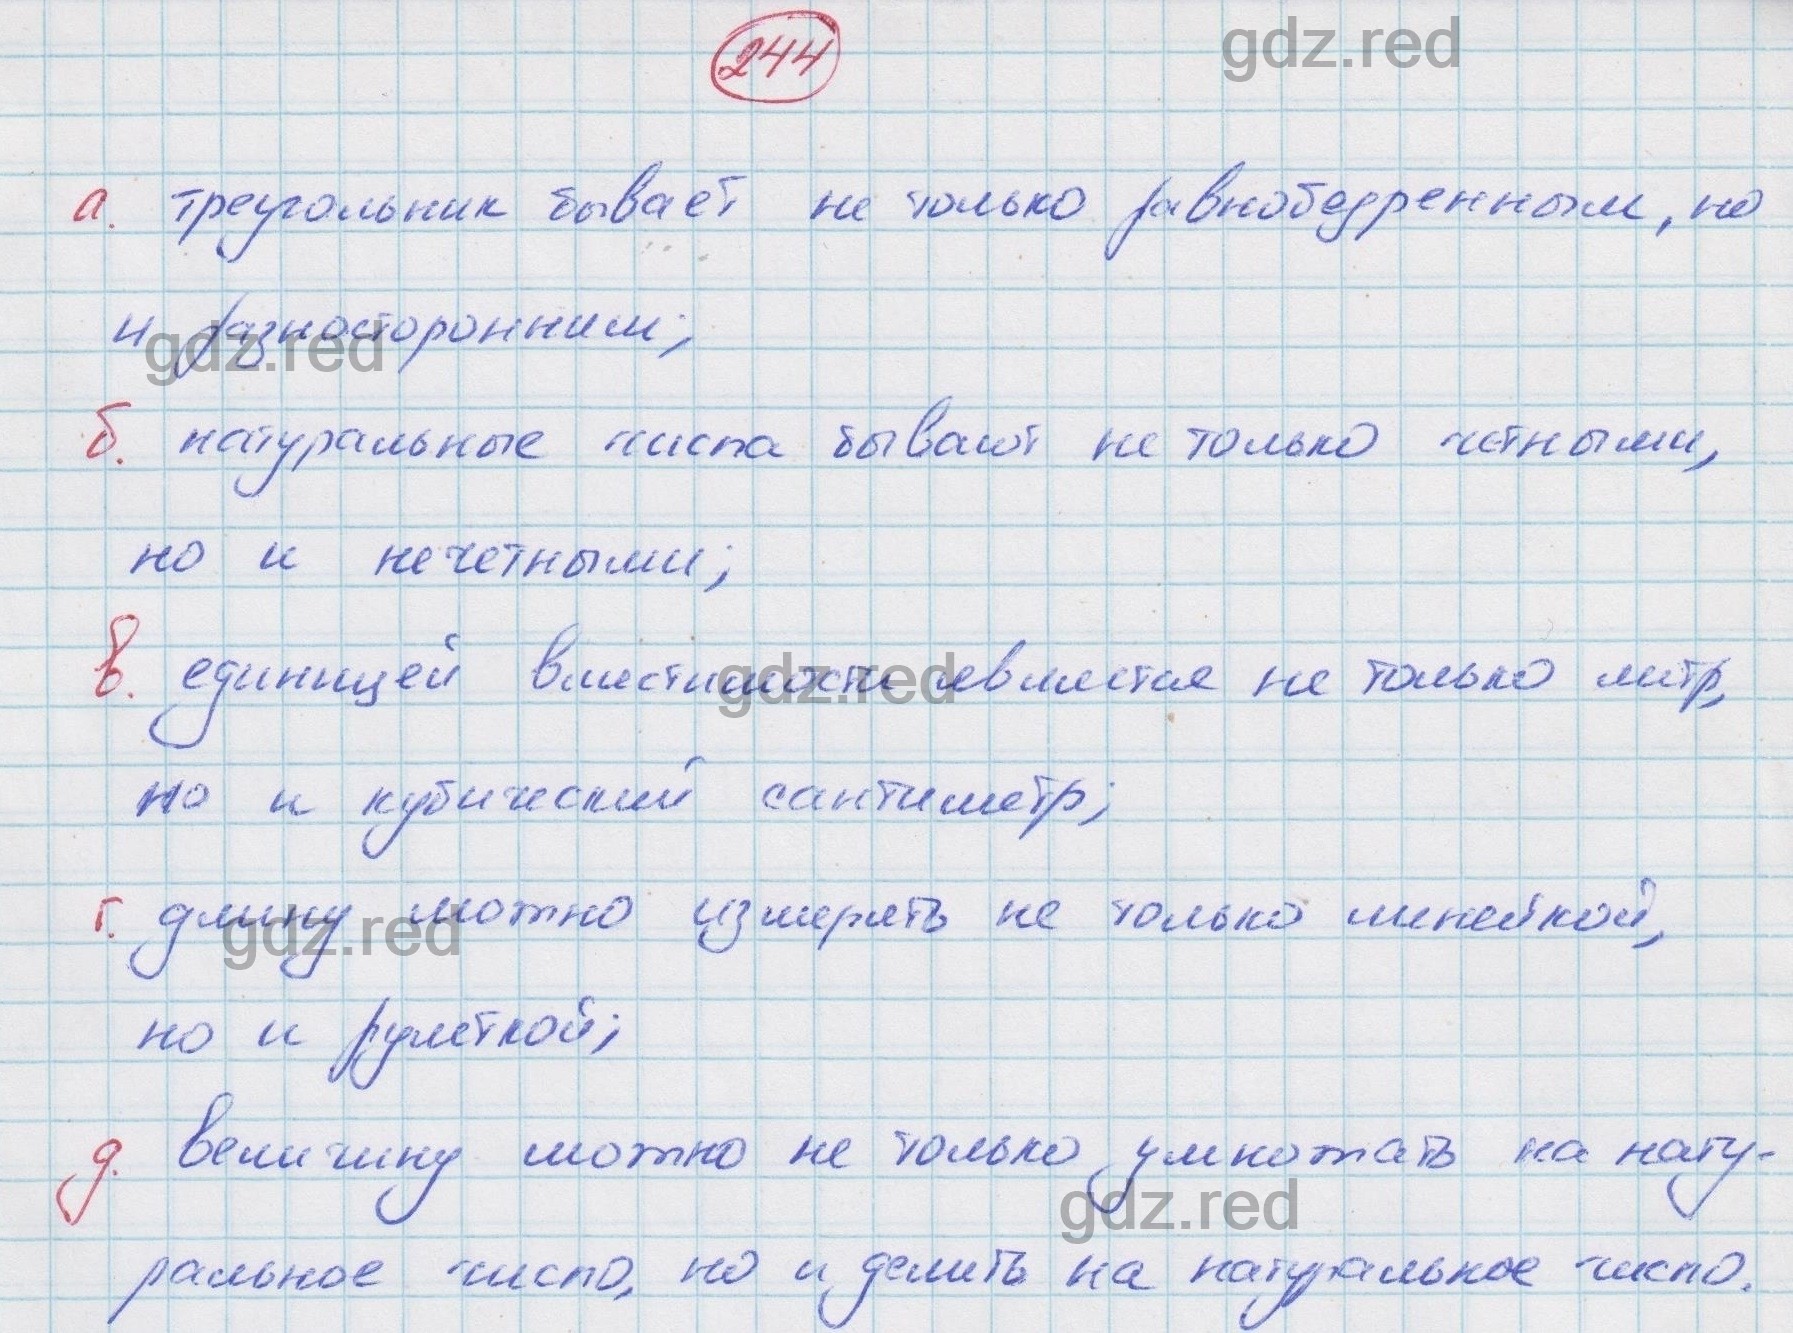 244
gdz.red
а. треугольник бывает не только равнобедренным, но
и разносторонним;
gdz.red
б. натуральные числа бывают не только четными,
но и нечетными;
в. единицей вместимости является не только литр,
gdz.red
но и кубический сантиметр;
г. длину можно измерять не только линейкой,
gdz.red
но и рулеткой;
д. величину можно не только умножать на нату-
gdz.red
ральное число, но и делить на натуральное число.